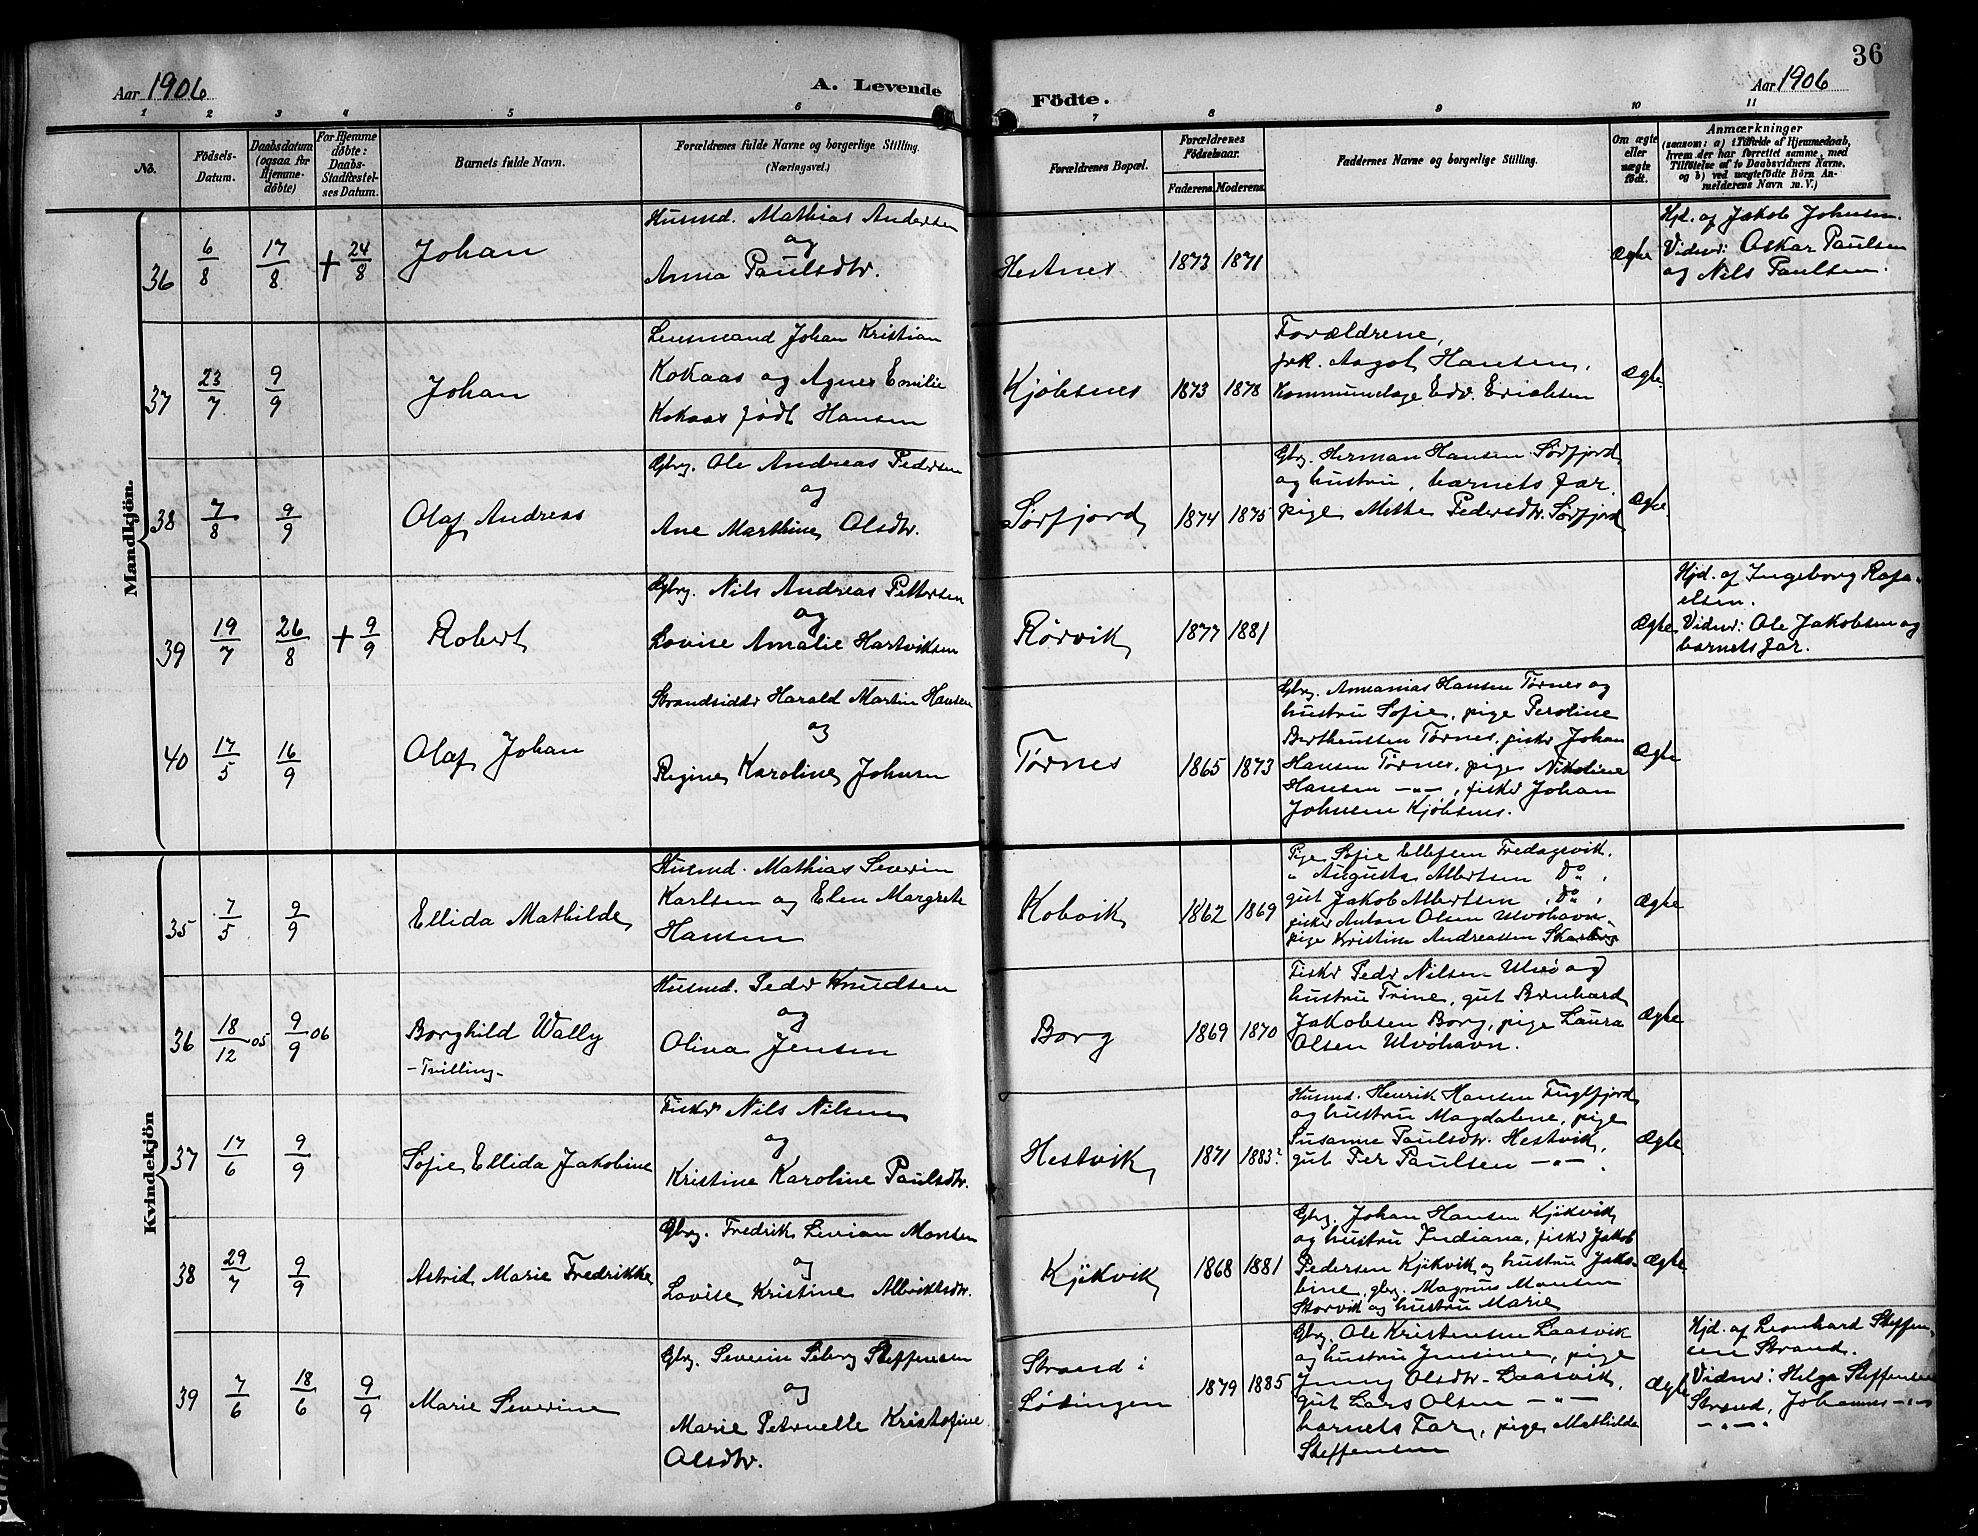 36
Aar 1906
A. Levende
Födte.
Aar 1906
1 2 3 4 5 6 7 8 9 10 11
No.
Födsels-Datum.
Daabsdatum (ogsaa for Hjemmedöbte)
For Hjemmedöbte: Daabs-Stadfæstelses Datum.
Barnets fulde Navn.
Forældrenes fulde Navne og borgerlige Stilling. (Næringsvei.)
Forældrenes Bopæl.
Forældrenes Födselsaar.
Faderens Moderens
Faddernes Navne og borgerlige Stilling.
Om ægte eller uægte födt.
Anmærkninger
(saasom: a) i Tilfælde af Hjemmedaab, hvem der har forrettet samme, med Tilföielse af to Daabsvidners Navne, og b) ved uægtefödte Börn Anmelderens Navn m. V.)
Mandkjön.
36 6/8 17/8 + 24/8 Johan
Husmd. Mathias Andersen
og
Anna Paulsdtr.
Hestnes 1873 1871
Ægte
Hjd. af Jakob Johnsen.
Vidner: Oskar Paulsen
og Nils Paulsen.
37 23/7 9/9 Johan
Lensmand Johan Kristian
Kokaas og Agnes Emilie
Kokaas født Hansen
Kjöbsnes 1873 1878
Forældrene,
frk. Aagot Hansen,
Kommunelæge Edv. Erichsen
Ægte
38 7/8 9/9 Olaf Andreas
Gbrg. Ole Andreas Pedersen
og
Ane Marthine Olsdtr.
Sørfjord 1874 1875
Gbrg. Herman Hansen Sørfjord
og hustru, barnets far.
pige Mette Pedersdtr. Sørfjord
Ægte
39 19/7 26/8 + 9/9 Robert
Gbrg. Nils Andreas Pettersen
og
Lovise Amalie Hartviksen
Rørvik 1877 1881
Ægte
Hjd. af Ingeborg Rafa-
elsen.
Vidner: Ole Jakobsen og
barnets far.
40 17/5 16/9 Olaf Johan
Strandsidder Harald Martin Hansen
og
Regine Karoline Johnsen
Tørnes 1865 1873
Gbrg. Annanias Hansen Tørnes og
hustru Sofie, pige Peroline
Bertheussen Tørnes, fisker Johan
Hansen Tørnes, pige Nikoline
Hansen -"-, fisker Johan
Johnsen Kjöbsnes.
Ægte
Kvindekjön
35 7/5 9/9 Ellida Mathilde
Husmd. Mathias Severin
Karlsen og Elen Margrete
Hansen
Kobvik 1862 1869
Pige Sofie Ellefsen Fredagsvik.
" Augusta Albertsen Do,
gut Jakob Albertsen, Do,
fisker Anton Olsen Ulvöhavn
pige Kristine Andreassen
Ægte
36 18/12 05 9/9 06 Borghild Wally
- Tvilling -
Husmd. Peder Knudsen
og
Olina Jensen
Borg 1869 1870
Fisker Peder Nilsen Ulvö og
hustru Trine, gut Bernhard
Jakobsen Borg, pige Laura
Olsen Ulvöhavn.
Ægte
37 17/6 9/9 Sofie Ellida Jakobine
Fisker Nils Nilsen
og
Kristine Karoline Paulsdtr.
Hestvik 1871 1883?
Husmd. Henrik Hansen Fuglfjord
og hustru Magdalene, pige
Susanne Paulsdtr. Hestvik,
gut Per Paulsen -"-.
Ægte
38 29/7 9/9 Astrid Marie Fredrikke
Gbrg. Fredrik Livian Monsen
og
Lovise Kristine Albriktsdtr.
Kjikvik 1868 1881
Gbrg. Johan Hansen Kjikvik
og hustru Indiana, fisker Jakob
Pedersen Kjikvik og hustru Jako-
bine, gbrg. Magnus Monsen
Storvik og hustru Marie
Ægte
39 7/6 18/6 9/9 Marie Severine
Gbrg. Severin Seberg Steffensen
og
Marie Petronelle Kristofine
Olsdtr.
Strand i
Lødingen 1879 1885
Gbrg. Ole Kristensen Laasvik
og hustru Jensine, pige
Jenny Olsdtr. Laasvik,
gut Lars Olsen -"-
barnets Far, pige Mathilde
Steffensen
Ægte
Hjd. af Leonhard Steffen-
sen Strand.
Vidner: Helga Steffensen
Strand, Johannes -"-
-"-